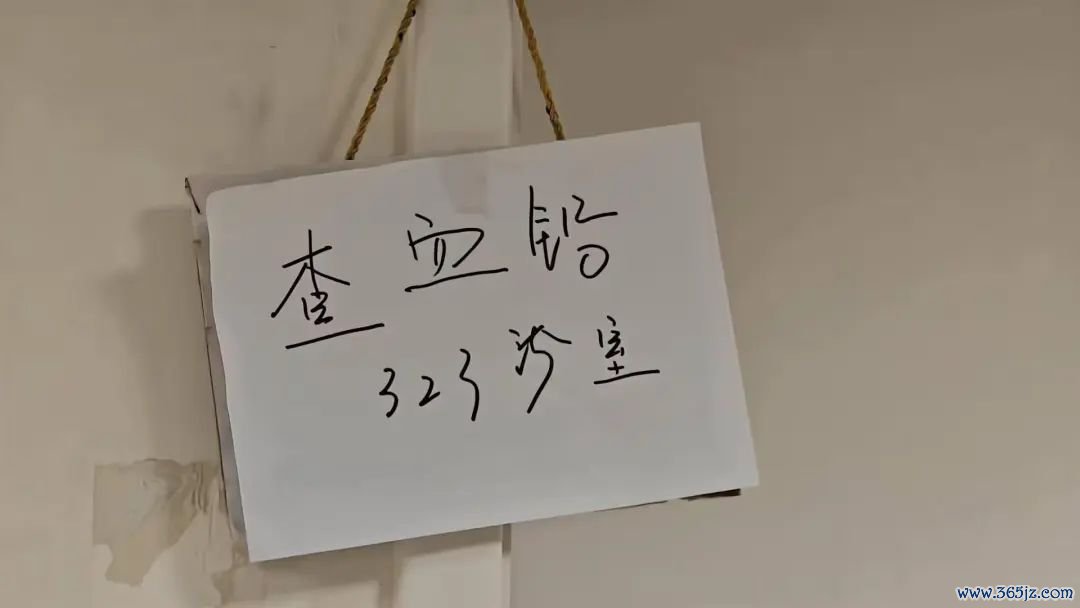 查血铅
323诊室
www.365jz.com